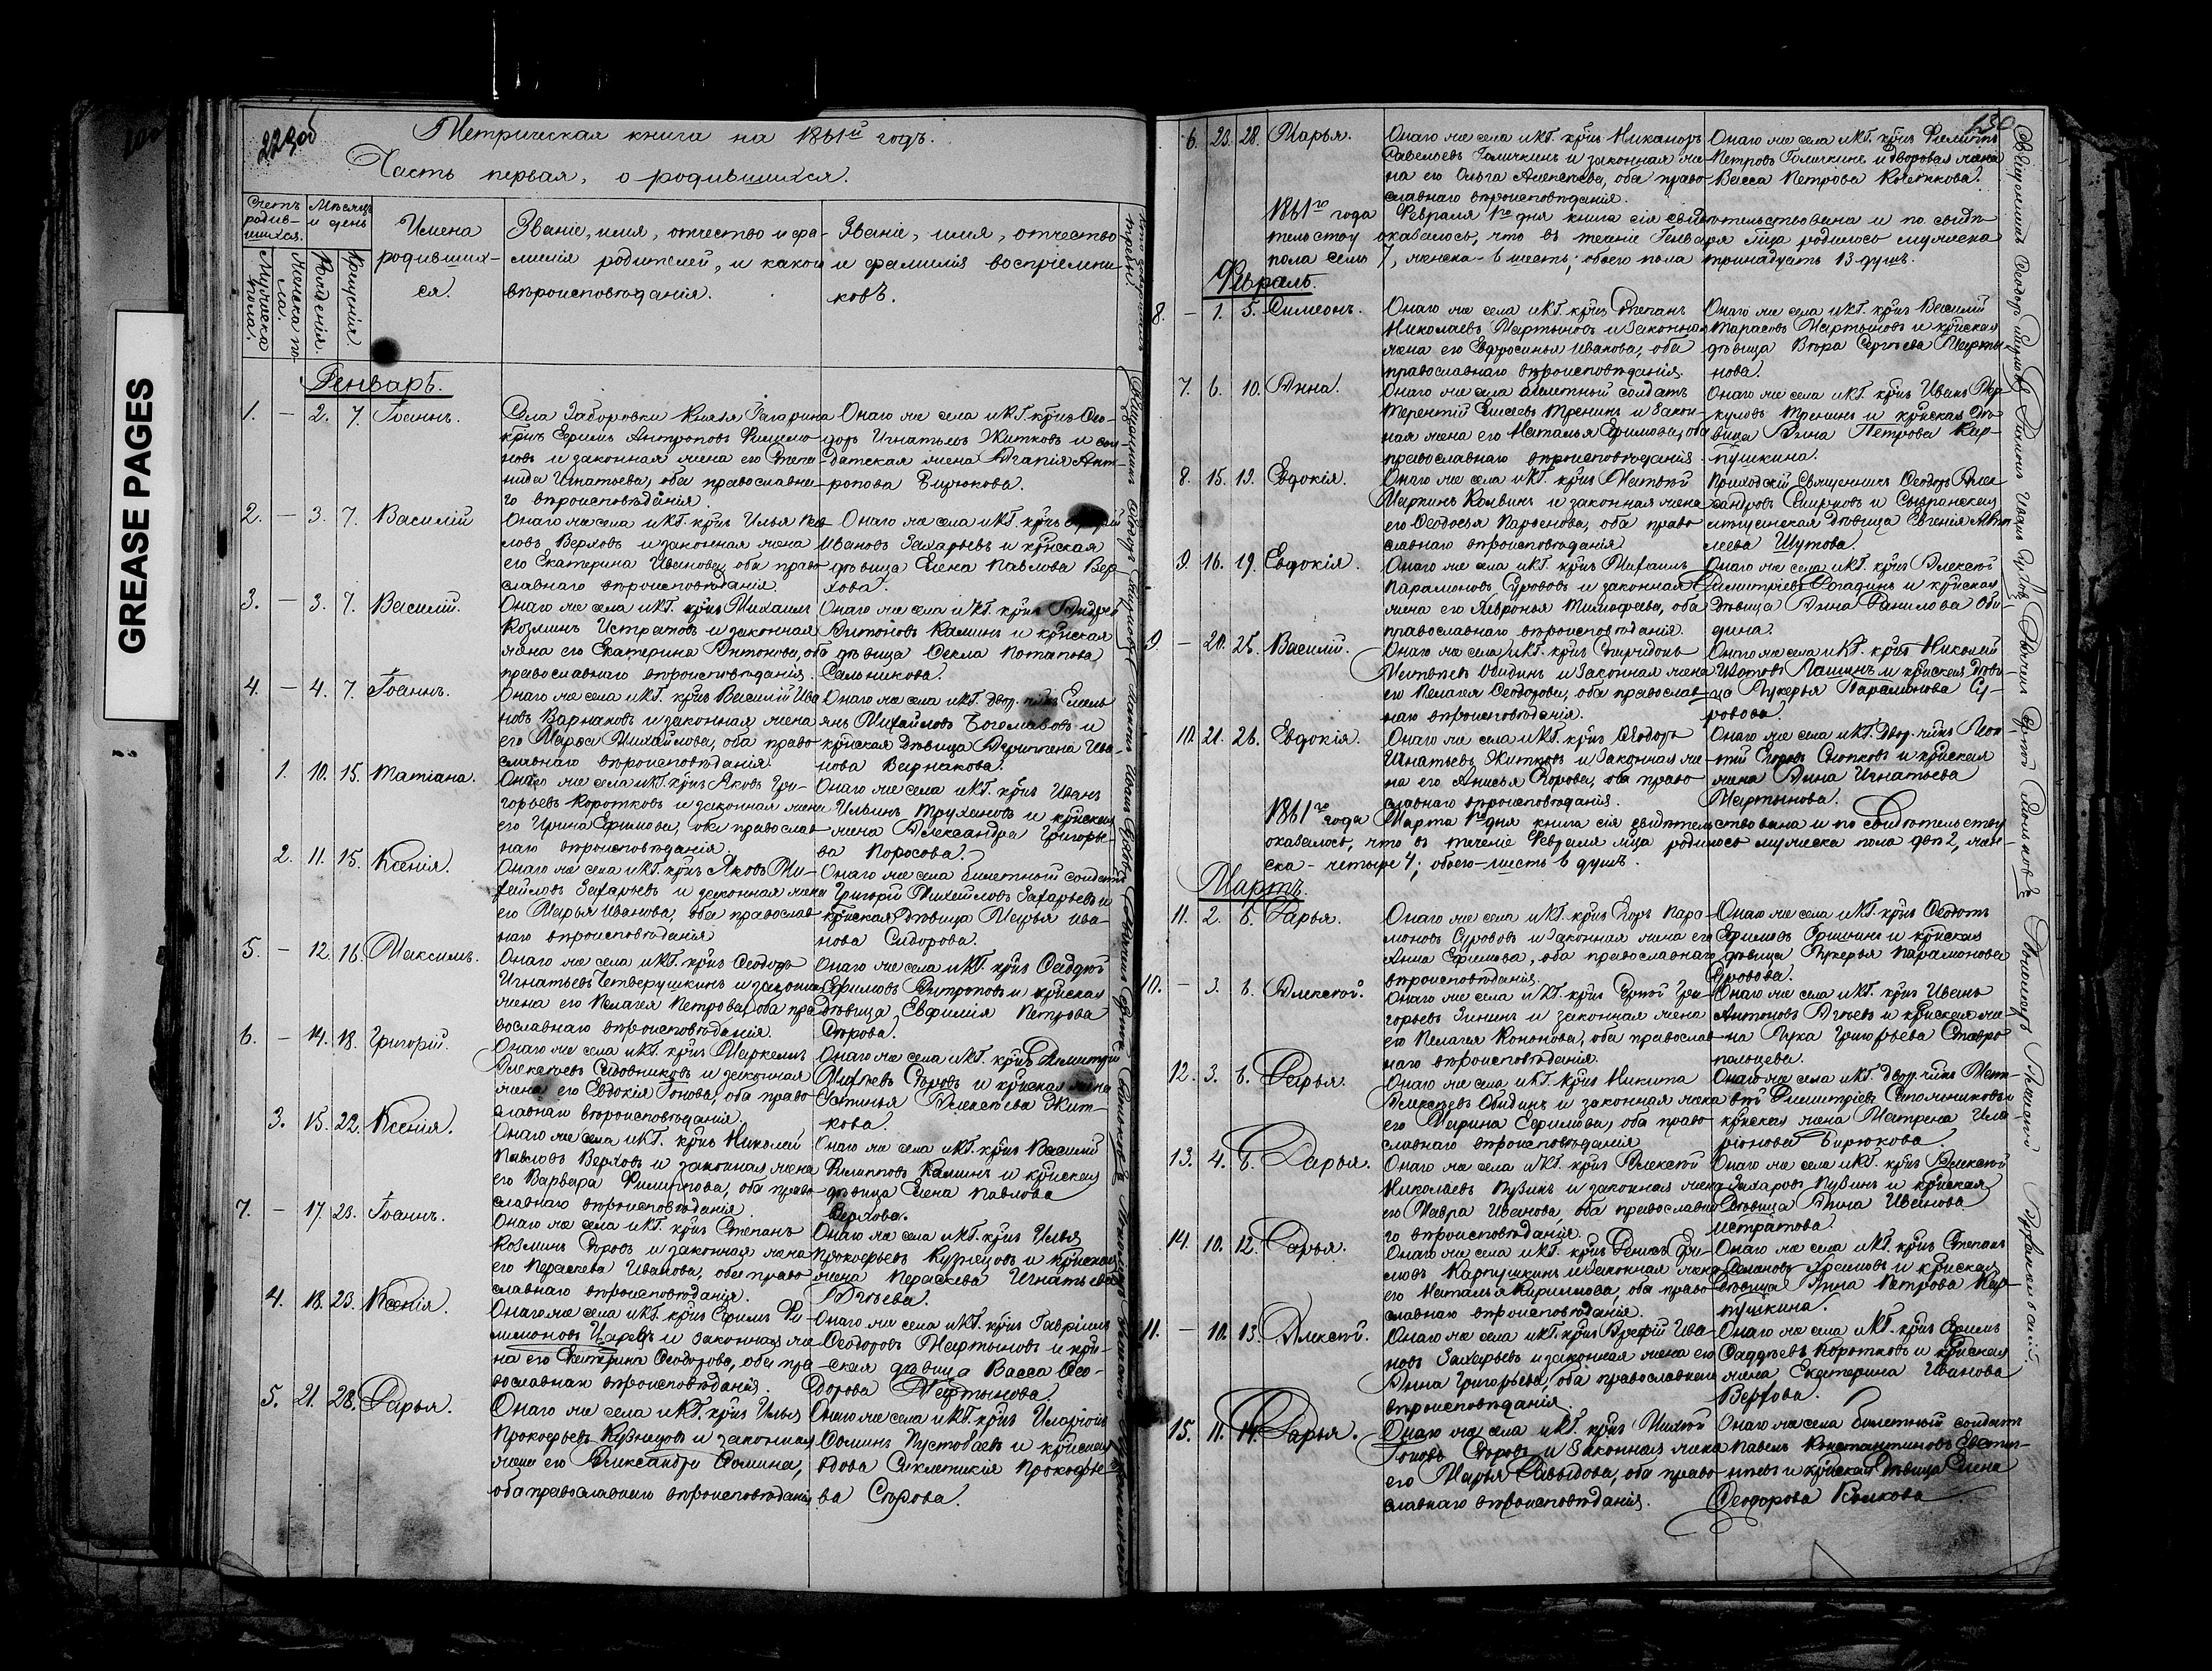 GREASE PAGES
223об
Метрическая книга на 1861й годъ.
Часть первая, о родившихся.
Счетъ родив-шихся.
Мѣсяцъ и день
Мужеска пола.
Женска по-ла.
Рожденія.
Крещенія.
Имена
родивших-
ся.
Званіе, имя, отчество и фа-
милія родителей, и какого
вѣроисповѣданія.
Званіе, имя, отчество
и фамилія воспріемни-
ковъ.
Генварь.
1. – 2. 7. Іоаннъ.
Села Заборовки Князя Гагарина
крѣс Ефимъ Антроповъ
и законная жена его Степа-
нида Игнатьева, оба православна-
го вѣроисповѣданія.
Онаго же села и КГ. крѣс Ѳео-
доръ Игнатьевъ Житковъ и сол-
датская жена Агапія Ант-
ропова Бирюкова.
2. – 3. 7. Василій
Онаго же села и КГ. крѣс Илья Пав-
ловъ Верховъ и законная жена
его Екатерина Иванова, оба право-
славнаго вѣроисповѣданія.
Онаго же села и КГ. крѣс
Ивановъ Захарьевъ и крѣская
дѣвица Елена Павлова Вер-
хова.
3. – 3. 7. Василій.
Онаго же села и КГ. крѣс Михаилъ
Козминъ Истратовъ и законная
жена его Екатерина Антонова, оба
православнаго вѣроисповѣданія.
Онаго же села и КГ. крѣс Андрей
Антоновъ Калинъ и крѣская
дѣвица Ѳекла Потапова
Сальникова.
4. – 4. 7. Іоаннъ.
Онаго же села и КГ. крѣс Василій Ива-
новъ Варнаковъ и законная жена
его Марья Михайлова, оба право-
славнаго вѣроисповѣданія.
Онаго же села и КГ. двор. члкъ Емель-
янъ Михайловъ Богомазовъ и
крѣская дѣвица Ива-
нова Варнакова.
1. 10. 15. Татіана.
Онаго же села и КГ. крѣс Яковъ Гри-
горьевъ Коротковъ и законная жена
его Ирина Ефимова, оба православ-
наго вѣроисповѣданія.
Онаго же села и КГ. крѣс Иванъ
Ильинъ Трухановъ и крѣская
жена Александра Григорье-
ва Поросова.
2. 11. 15. Ксенія.
Онаго же села и КГ. крѣс Яковъ Ми-
хайловъ Захарьевъ и законная жена
его Марья Иванова, оба православ-
наго вѣроисповѣданія
Онаго же села билетный солдатъ
Григорій Михайловъ Захарьевъ и
крѣская дѣвица Марья Ива-
нова Сидорова.
5. – 12. 16. Максимъ.
Онаго же села и КГ. крѣс Ѳеодоръ
Игнатьевъ Четверушкинъ и законная
жена его Пелагея Петрова, оба пра-
вославнаго вѣроисповѣданія.
Онаго же села и КГ. крѣс Ѳаддей
Ефимовъ Антроповъ и крѣская
дѣвица Евфимія Петрова
Егорова.
6. – 14. 18. Григорій.
Онаго же села и КГ. крѣс Маркелъ
Алексѣевъ Садовниковъ и законная
жена его Евдокія Іонова, оба право-
славнаго вѣроисповѣданія.
Онаго же села и КГ. крѣс Димитрій
Михѣевъ Егоровъ и крѣская жена
Фотинья Алексѣева Жит-
кова.
3. 15. 22. Ксенія.
Онаго же села и КГ. крѣс Николай
Павловъ Верховъ и законная жена
его Варвара Филиппова, оба право-
славнаго вѣроисповѣданія.
Онаго же села и КГ. крѣс Василій
Филипповъ Калинъ и крѣская
дѣвица Елена Павлова
Верхова.
7. – 17. 23. Іоаннъ.
Онаго же села и КГ. крѣс Степанъ
Козминъ Егоровъ и законная жена
его Параскева Иванова, оба право-
славнаго вѣроисповѣданія.
Онаго же села и КГ. крѣс Илья
Прокофьевъ Кузнецовъ и крѣская
жена Параскева Игнатьева
Агѣева.
4. 18. 23. Ксенія.
Онаго же села и КГ. крѣс Ефимъ Фи-
лимоновъ Царевъ и законная же-
на его Екатерина Ѳеодорова, оба пра-
вославнаго вѣроисповѣданія.
Онаго же села и КГ. крѣс Гавріилъ
Ѳеодоровъ Мартыновъ и крѣ-
ская дѣвица Васса Ѳео-
дорова Мартынова.
5. 21. 28. Дарья.
Онаго же села и КГ. крѣс Илья
Прокофьевъ Кузнецовъ и законная
жена его Александра Ѳомина,
оба православнаго вѣроисповѣданія.
Онаго же села и КГ. крѣс Иларіонъ
Ѳоминъ Пустобаевъ и крѣская
вдова Синклетикія Прокофье-
ва Серова.
130
6. 23. 28. Марья.
Онаго же села и КГ. крѣс Никаноръ
Савельевъ Голичкинъ и законная же-
на его Ольга Алексѣева, оба право-
славнаго вѣроисповѣданія.
Онаго же села и КГ. крѣс Филиппъ
Петровъ Голичкинъ и дворовая жена
Васса Петрова Кочеткова.
1861го года Февраля 1го дня книга сія свидѣтельствована и по свидѣ-
тельству оказалось, что въ теченіе Генваря мца родилось мужеска
пола семь 7, женска - 6 шесть; обоего пола тринадцать 13 душъ.
Февраль.
8. – 1. 5. Симеонъ.
Онаго же села и КГ. крѣс Степанъ
Николаевъ Мартыновъ и законная
жена его Евфросинья Иванова, оба
православнаго вѣроисповѣданія.
Онаго же села и КГ. крѣс Василій
Тарасовъ Мартыновъ и крѣская
дѣвица Вѣра Сергѣева Марты-
нова.
7. 6. 10. Анна.
Онаго же села билетный солдатъ
Терентій Елисеевъ Тренинъ и закон-
ная жена его Наталья Ефимова, оба
православнаго вѣроисповѣданія.
Онаго же села и КГ. крѣс Иванъ Мер-
куловъ Тренинъ и крѣская дѣ-
вица Анна Петрова Кар-
пушкина.
8. 15. 19. Евдокія.
Онаго же села и КГ. крѣс Матвей
Маркинъ Калвинъ и законная жена
его Ѳеодосья Парѳенова, оба право-
славнаго вѣроисповѣданія.
Приходскій Священникъ Ѳеодоръ Алек-
сандровъ Смирновъ и Сызранская
мѣщанская дѣвица Евгенія
Шутова.
9. 16. 19. Евдокія.
Онаго же села и КГ. крѣс Михаилъ
Парамоновъ Сурововъ и законная
жена его Февронья Тимофеева, оба
православнаго вѣроисповѣданія.
Онаго же села и КГ. крѣс Алексѣй
Димитріевъ и крѣская
дѣвица Анна Данилова Оби-
дина.
9. – 20. 25. Василій.
Онаго же села и КГ. крѣс Спиридонъ
Матвѣевъ Обидинъ и законная жена
его Пелагея Ѳеодорова, оба православ-
наго вѣроисповѣданія.
Онаго же села и КГ. крѣс Николай
Изотовъ Лашинъ и крѣская дѣви-
ца Лукерья Парамонова Су-
ровова.
10. 21. 26. Евдокія.
Онаго же села и КГ. крѣс Ѳеодоръ
Игнатьевъ Житковъ и законная же-
на его Анисья Егорова, оба право-
славнаго вѣроисповѣданія.
Онаго же села и КГ. двор. члкъ Леон-
тій Егоровъ и крѣская
жена Анна Игнатьева
Мартынова.
1861го года Марта 1го дня книга сія свидѣтельствована и по свидѣтельству
оказалось, что въ теченіе Февраля мца родилось мужеска пола два 2, жен-
ска - четыре 4; обоего - шесть 6 душъ.
Мартъ.
11. 2. 6. Дарья.
Онаго же села и КГ. крѣс Егоръ Пара-
моновъ Сурововъ и законная жена его
Анна Ефимова, оба православнаго
вѣроисповѣданія.
Онаго же села и КГ. крѣс Ѳеодотъ
Ефимовъ и крѣская
дѣвица Лукерья Парамонова
Суровова.
10. – 3. 6. Алексѣй.
Онаго же села и КГ. крѣс Сергей Гри-
горьевъ Зининъ и законная жена
его Пелагея Кононова, оба православ-
наго вѣроисповѣданія.
Онаго же села и КГ. крѣс Иванъ
Антоновъ Агѣевъ и крѣская же-
на Григорьева Ставро-
польцева.
12. 3. 6. Дарья.
Онаго же села и КГ. крѣс Никита
Алексѣевъ Обидинъ и законная жена
его Марина Ефимова, оба право-
славнаго вѣроисповѣданія
Онаго же села и КГ. двор. члкъ Мат-
вѣй Димитріевъ и
крѣская жена Матрена Ила-
ріонова Бирюкова.
13. 4. 6. Дарья.
Онаго же села и КГ. крѣс Алексѣй
Николаевъ Пузинъ и законная жена
его Мавра Иванова, оба православна-
го вѣроисповѣданія.
Онаго же села и КГ. крѣс Алексѣй
Захаровъ Пузинъ и крѣская
дѣвица Анна Иванова
Истратова.
14. 10. 12. Дарья.
Онаго же села и КГ. крѣс Денисъ
Карпушкинъ и законная жена
его Наталья Кириллова, оба право-
славнаго вѣроисповѣданія.
Онаго же села и КГ. крѣс Степанъ
и крѣская
дѣвица Анна Петрова Кар-
пушкина.
11. – 10. 13. Алексѣй.
Онаго же села и КГ. крѣс Ива-
новъ Захарьевъ и законная жена его
Анна Григорьева, оба православнаго
вѣроисповѣданія.
Онаго же села и КГ. крѣс Ефимъ
Ѳаддѣевъ Коротковъ и крѣская
жена Екатерина Иванова
Верхова.
15. 11. 14. Дарья.
Онаго же села и КГ. крѣс Михей
Іоновъ Егоровъ и законная жена
его Марья Давыдова, оба право-
славнаго вѣроисповѣданія.
Онаго же села билетный солдатъ
Павелъ Константиновъ
и крѣская дѣвица Елена
Ѳеодорова Волкова